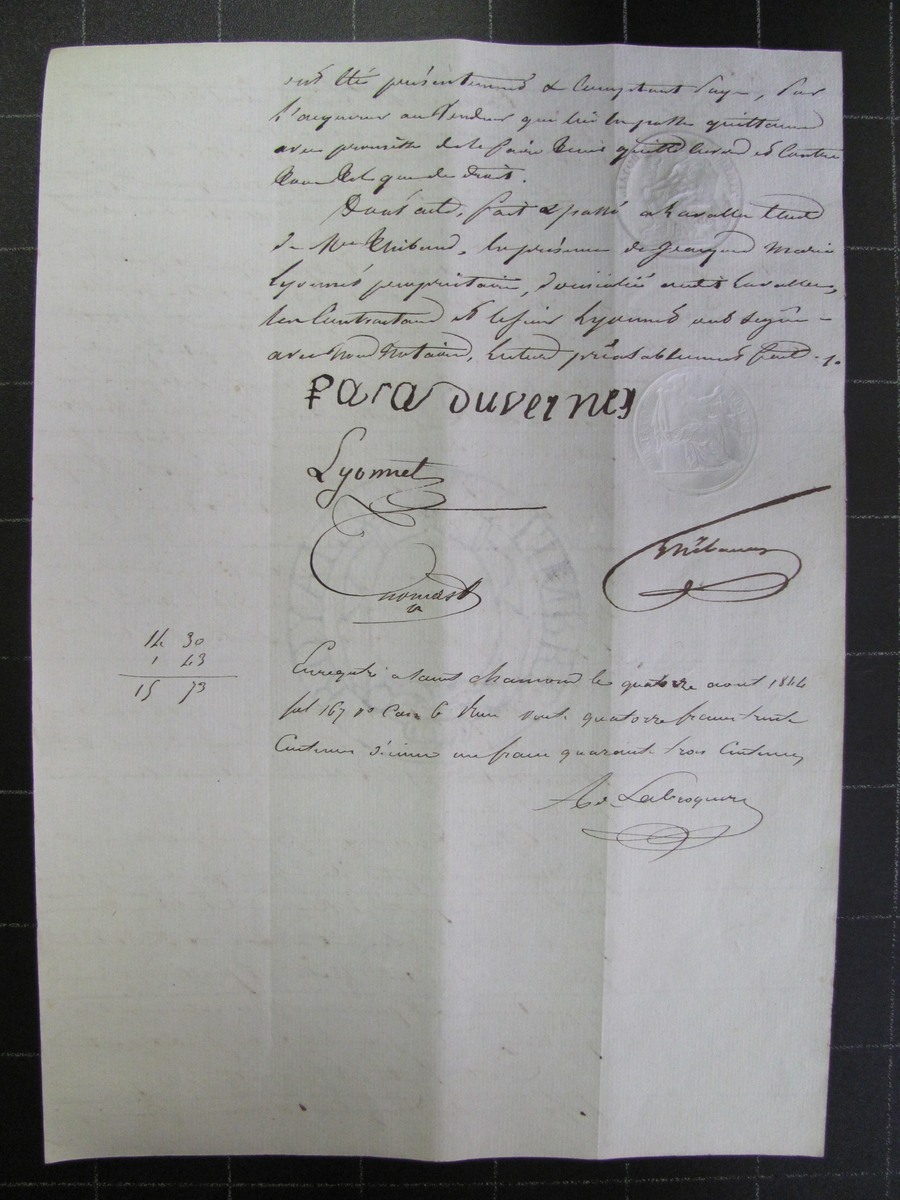 ont été présentement & comptant payé, par
l'acquereur au vendeur qui lui en passe quittance
avec promesse de le faire tenir quitte envers et contre
tous tel que de droit.
Dont acte, fait & passé a lavalla Etude
de Me Thibaud, en présence de Jacques Marie
Lyonnet propriétaire, domicilié audit lavalla,
les Contractans et le sieur Lyonnet ont signé
avec nous Notaire, lecture préalablement faite.
para duvernes
Lyonnet
Thibaud
14 30
1 43
15 73
Enregistré a Saint chamond le quatorze aout 1844
fol 167 vo Case 6 Reçu quatorze francs trente
Centimes décime un franc quarante trois Centimes